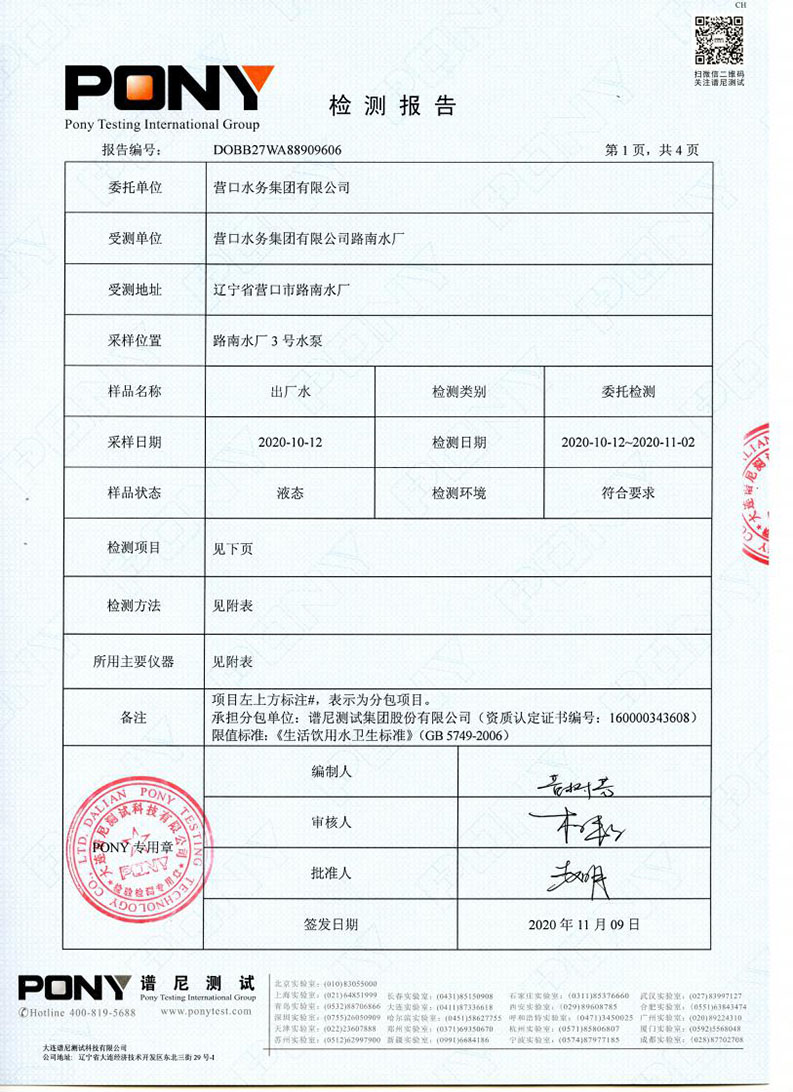 CH
扫微信二维码
关注谱尼测试
PONY
Pony Testing International Group
检测报告
报告编号： DOBB27WA88909606 第 1 页，共 4 页
委托单位 营口水务集团有限公司
受测单位 营口水务集团有限公司路南水厂
受测地址 辽宁省营口市路南水厂
采样位置 路南水厂 3 号水泵
样品名称 出厂水 检测类别 委托检测
采样日期 2020-10-12 检测日期 2020-10-12~2020-11-02
样品状态 液态 检测环境 符合要求
检测项目 见下页
检测方法 见附表
所用主要仪器 见附表
备注 项目左上方标注#，表示为分包项目。
承担分包单位：谱尼测试集团股份有限公司（资质认定证书编号：160000343608）
限值标准：《生活饮用水卫生标准》（GB 5749-2006）
编制人
审核人
批准人
签发日期 2020 年 11 月 09 日
PONY 专用章
DALIAN PONY TESTING TECHNOLOGY CO., LTD.
大连谱尼测试科技有限公司
PONY
检验检测专用章
PONY 谱尼测试
Pony Testing International Group
✆Hotline 400-819-5688 www.ponytest.com
北京实验室：(010)83055000
上海实验室：(021)64851999 长春实验室：(0431)85150908 石家庄实验室：(0311)85376660 武汉实验室：(027)83997127
青岛实验室：(0532)88706866 大连实验室：(0411)87336618 西安实验室：(029)89608785 合肥实验室：(0551)63843474
深圳实验室：(0755)26050909 哈尔滨实验室：(0451)58627755 呼和浩特实验室：(0471)3450025 广州实验室：(020)89224310
天津实验室：(022)23607888 郑州实验室：(0371)69350670 杭州实验室：(0571)85806807 厦门实验室：(0592)5568048
苏州实验室：(0512)62997900 新疆实验室：(0991)6684186 宁波实验室：(0574)87977185 成都实验室：(028)87702708
大连谱尼测试科技有限公司
公司地址： 辽宁省大连经济技术开发区东北三街 29 号-1